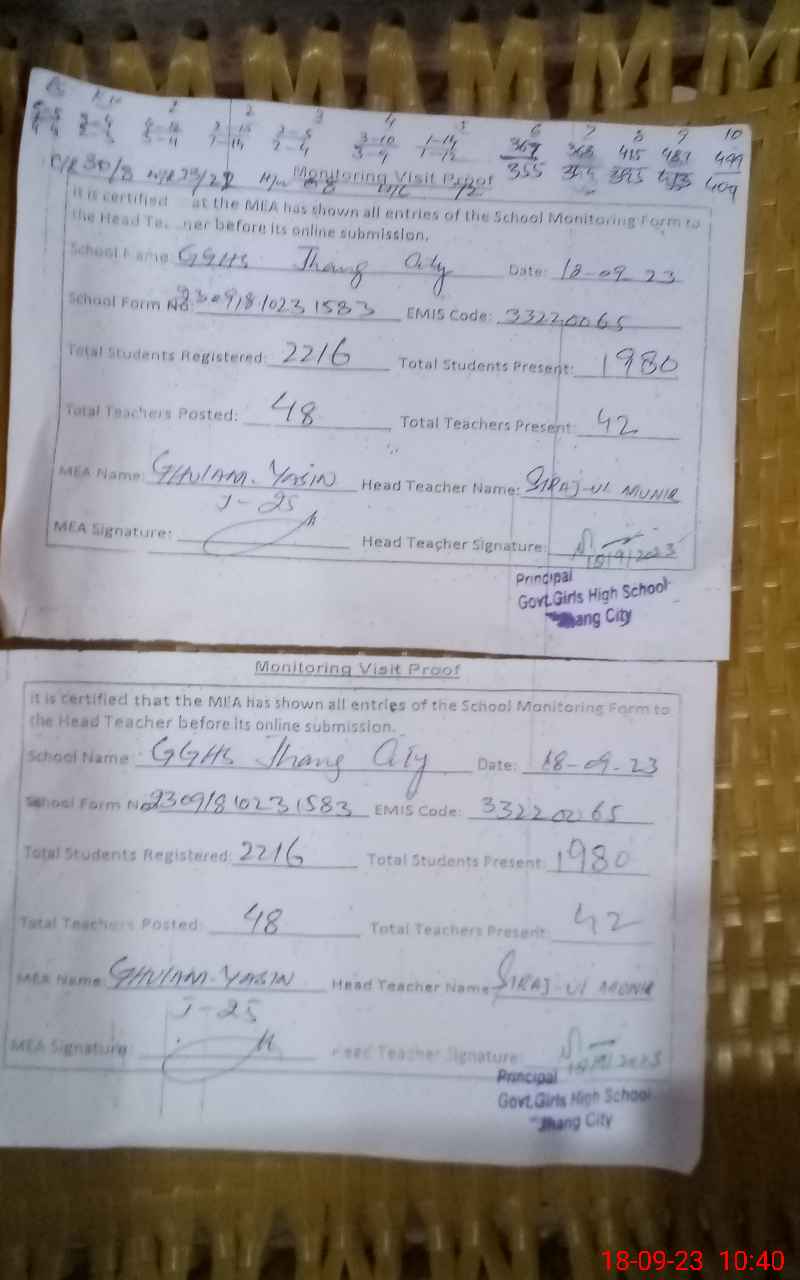 2 2 3 4 5 6 7 8 9 10
3-10 1-14 369 368 415 487 499
3-9 1-12 355 395 409
Monitoring Visit Proof
It is certified at the MEA has shown all entries of the School Monitoring Form to
the Head Te ner before its online submission.
School Name: GGHS Jhang City Date: 18-09-23
School Form No 2309181023 1583 EMIS Code: 33220065
Total Students Registered: 2216 Total Students Present: 1980
Total Teachers Posted: 48 Total Teachers Present: 42
MEA Name: GHULAM. YASIN Head Teacher Name: SIRAJ-UL MUNIR
J-25
MEA Signature: Head Teacher Signature:
18/9/2023
Principal
Govt.Girls High School
Jhang City
Monitoring Visit Proof
It is certified that the MEA has shown all entries of the School Monitoring Form to
the Head Teacher before its online submission.
School Name GGHS Jhang City Date: 18-09-23
School Form No 2309181023 1583 EMIS Code: 33220065
Total Students Registered: 2216 Total Students Present: 1980
Total Teachers Posted: 48 Total Teachers Present: 42
MEA Name: GHULAM. YASIN Head Teacher Name: SIRAJ-Ul MUNIR
J-25
MEA Signature: Head Teacher Signature:
Principal
Govt.Girls High School
Jhang City
18-09-23 10:40